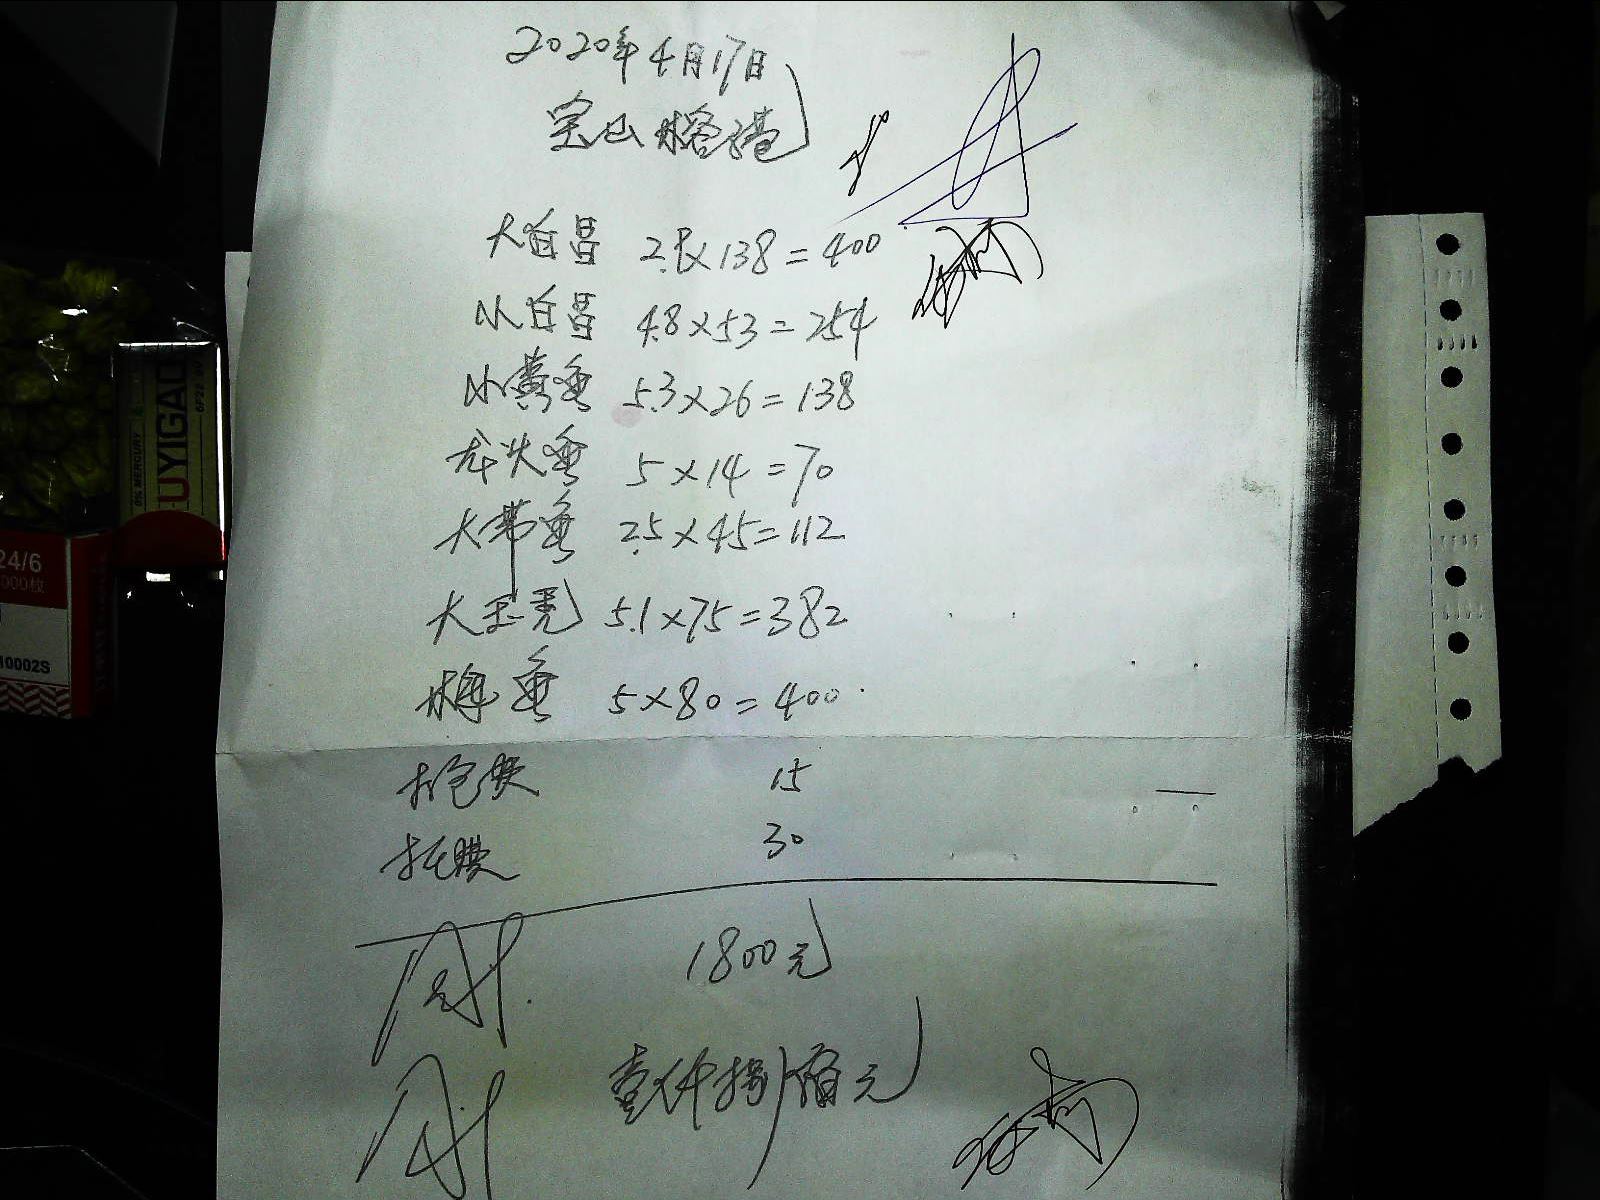 2020年4月17日
宝山
大白昌 2.9×138=400
小白昌 4.8×53=254
小黄鱼 5.3×26=138
龙头鱼 5×14=70
大带鱼 2.5×45=112
大玉秃 5.1×75=382
鱼 5×80=400
打包费 15
30
1800元
壹仟捌佰元
UYIGAO
0% MERCURY
6F22 9V
24/6
10002S